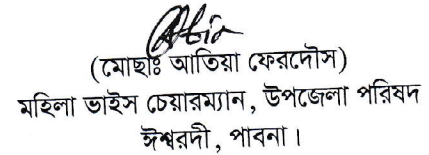 (মোছাঃ আতিয়া ফেরদৌস)
মহিলা ভাইস চেয়ারম্যান, উপজেলা পরিষদ
ঈশ্বরদী, পাবনা।